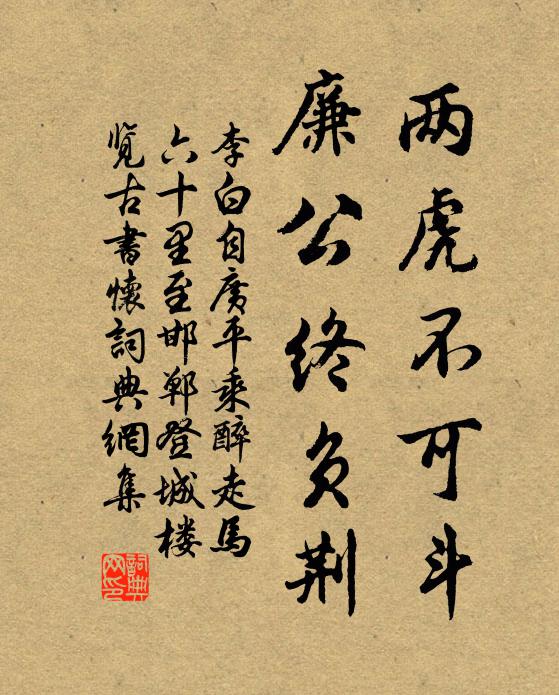 两虎不可斗
廉公终负荆
李白自广平乘醉走马
六十里至邯郸登城楼
览古書懷詞典網集
詞典网印